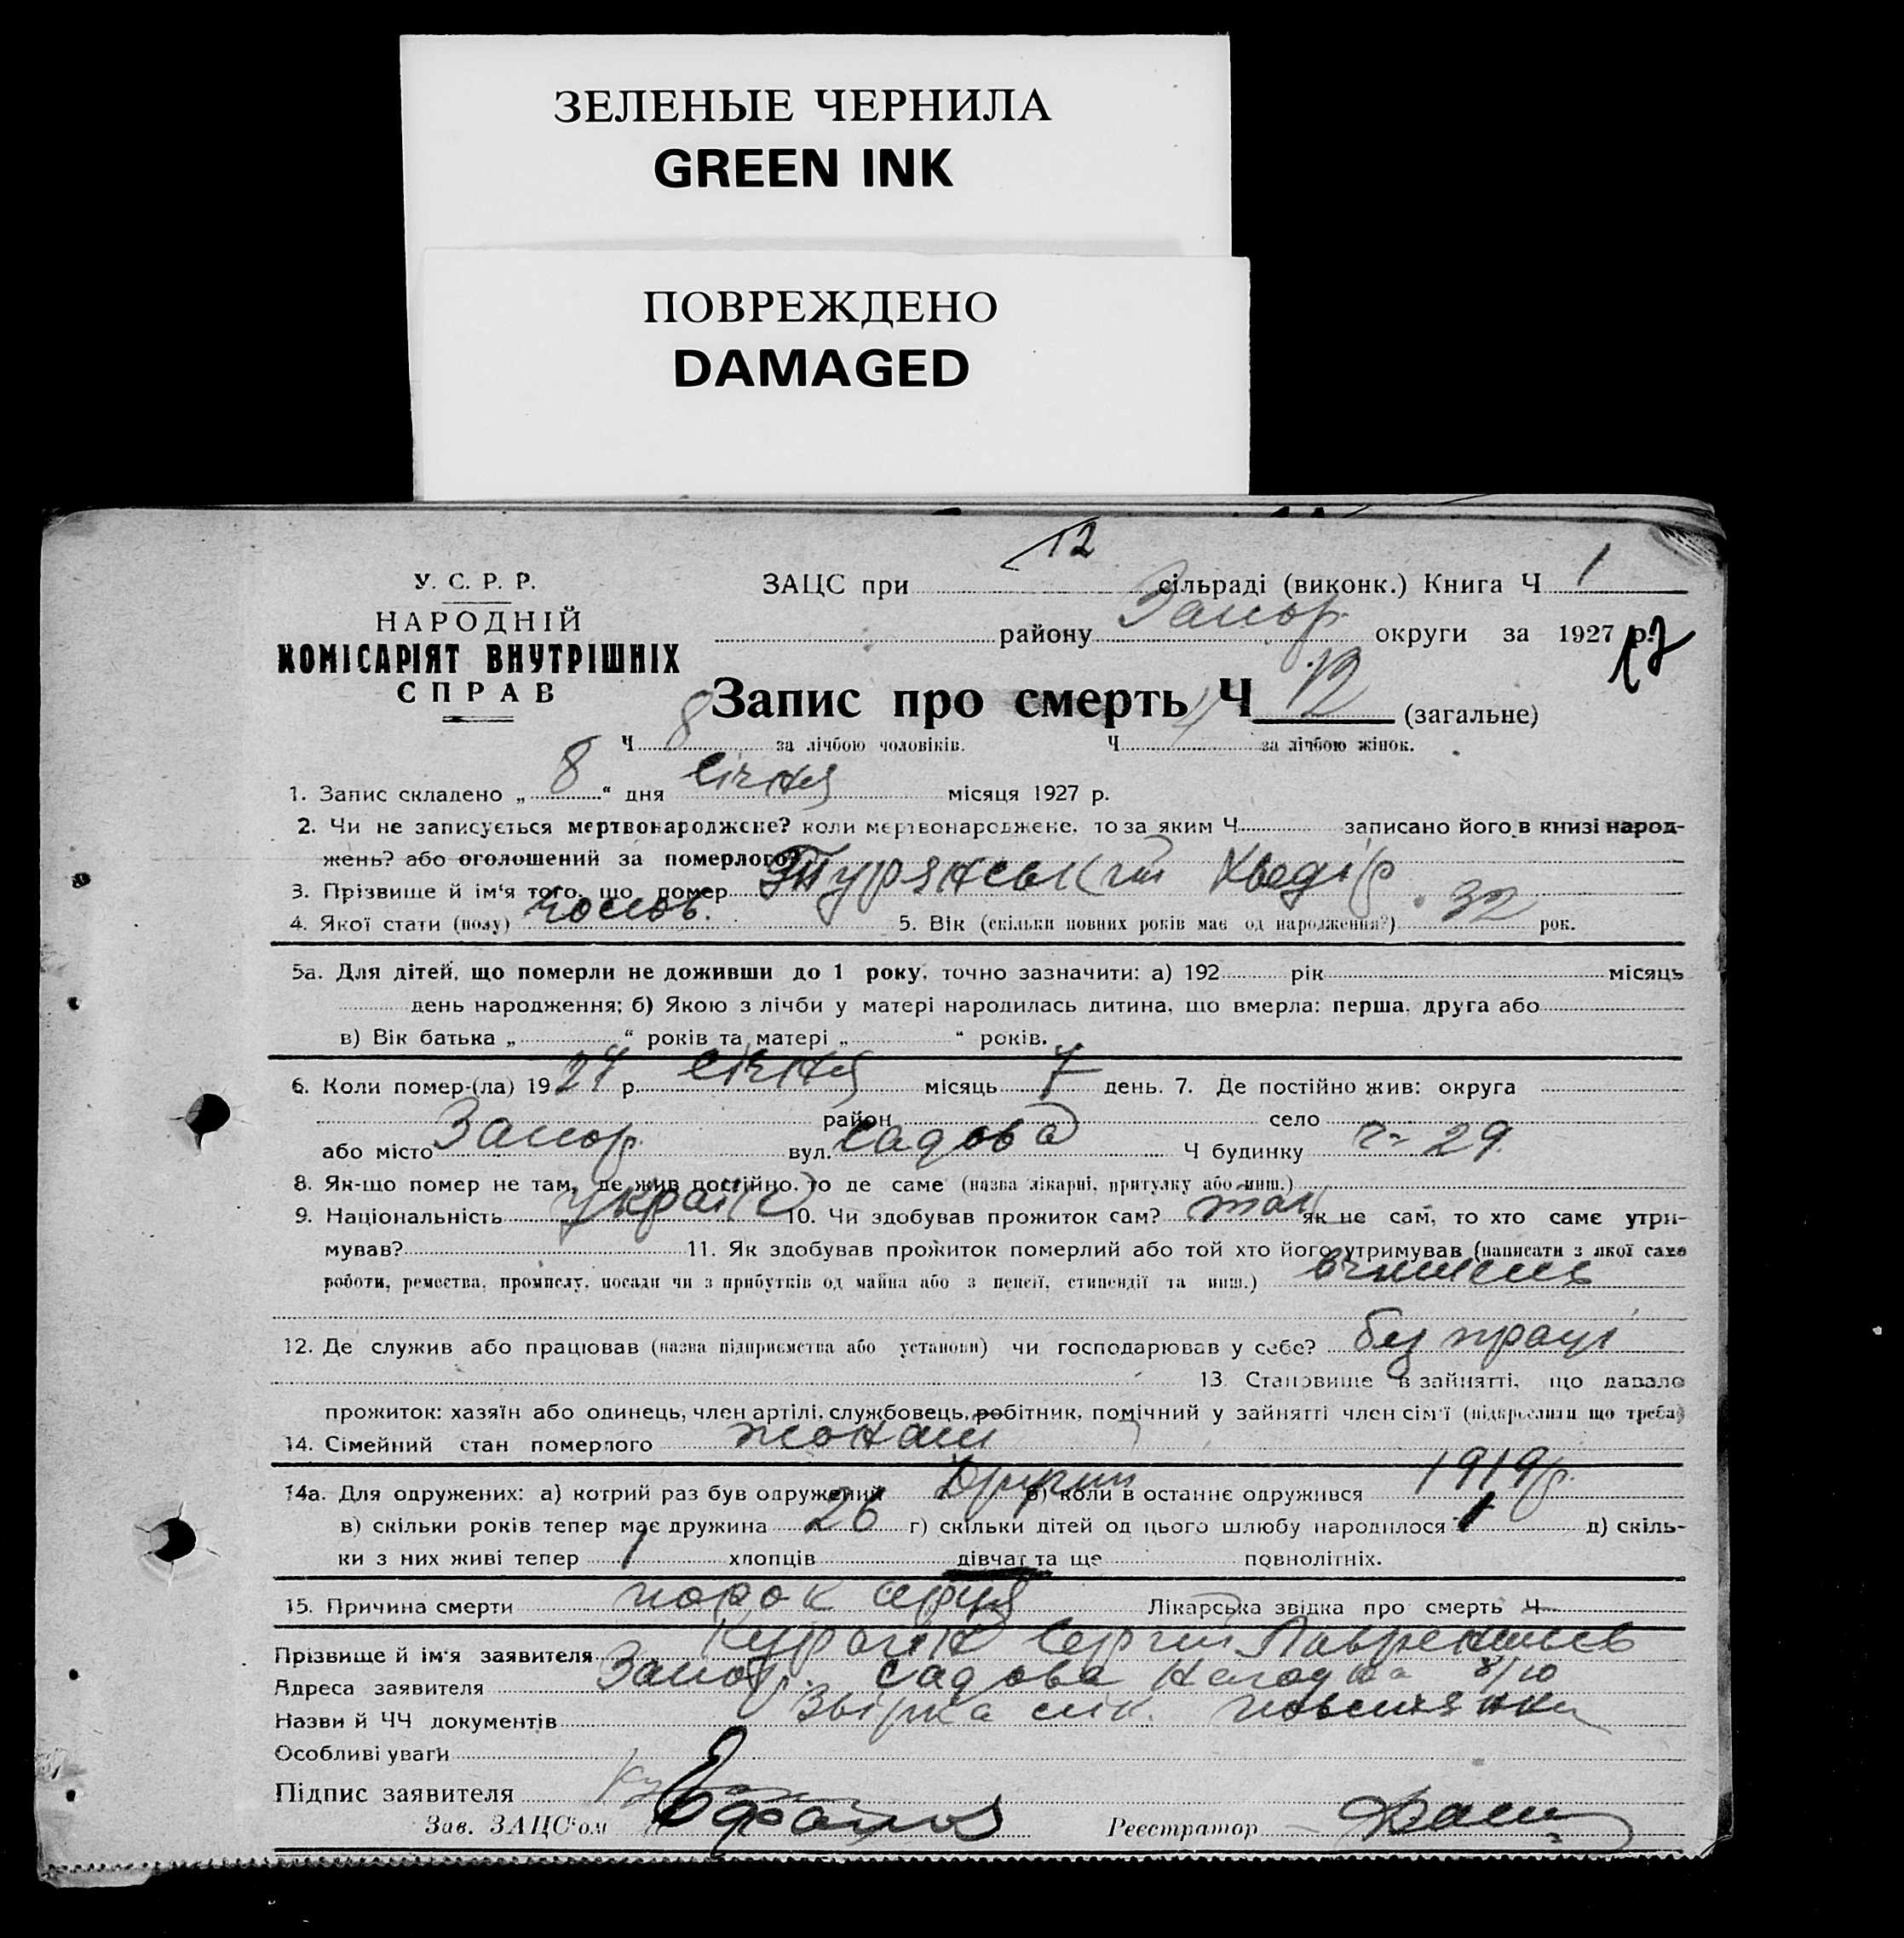 ЗЕЛЕНЫЕ ЧЕРНИЛА
GREEN INK
ПОВРЕЖДЕНО
DAMAGED
12
У. С. Р. Р.
НАРОДНІЙ
КОМІСАРІЯТ ВНУТРІШНІХ
СПРАВ
ЗАЦС при сільраді (виконк.) Книга Ч 1
району Запор. округи за 1927 р.
12
Запис про смерть Ч 12 (загальне)
Ч 8 за лічбою чоловіків. Ч 4 за лічбою жінок.
1. Запис складено „ 8 “ дня Січня місяця 1927 р.
2. Чи не записується мертвонароджене? коли мертвонароджене, то за яким Ч записано його в книзі народ-
жень? або оголошений за померлого?
3. Прізвище й ім'я того, що помер Турянський Хведір
4. Якої стати (полу) чолов. 5. Вік (скільки повних років має од народження?) 32 рок.
5а. Для дітей, що померли не доживши до 1 року, точно зазначити: а) 192 рік місяць
день народження; б) Якою з лічби у матері народилась дитина, що вмерла: перша, друга або
в) Вік батька „ “ років та матері „ “ років.
6. Коли помер-(ла) 1927 р. Січня місяць 7 день. 7. Де постійно жив: округа
район село
або місто Запор. вул. Садова Ч будинку 29
8. Як-що помер не там, де жив постійно, то де саме (назва лікарні, притулку або инш.)
9. Національність україн 10. Чи здобував прожиток сам? так як не сам, то хто саме утри-
мував? 11. Як здобував прожиток померлий або той хто його утримував (написати з якої саме
роботи, ремества, промислу, посади чи з прибутків од майна або з пенсії, стипендії та инш.) вчитель
12. Де служив або працював (назва підприємства або установи) чи господарював у себе? без праці
13. Становище в зайнятті, що давало
прожиток: хазяїн або одинець, член артілі, службовець, робітник, помічний у зайнятті член сім'ї (підкреслити що треба)
14. Сімейний стан померлого жонат
14а. Для одружених: а) котрий раз був одружений Другий б) коли в останнє одружився 1919 р.
в) скільки років тепер має дружина 26 г) скільки дітей од цього шлюбу народилося 1 д) скіль-
ки з них живі тепер 1 хлопців дівчат та ще повнолітніх.
15. Причина смерти порок серця Лікарська звідка про смерть Ч
Прізвище й ім'я заявителя Сергій
Адреса заявителя Запор. Садова 8/10
Назви й ЧЧ документів
Особливі уваги
Підпис заявителя
Зав. ЗАЦС'ом
Реєстратор